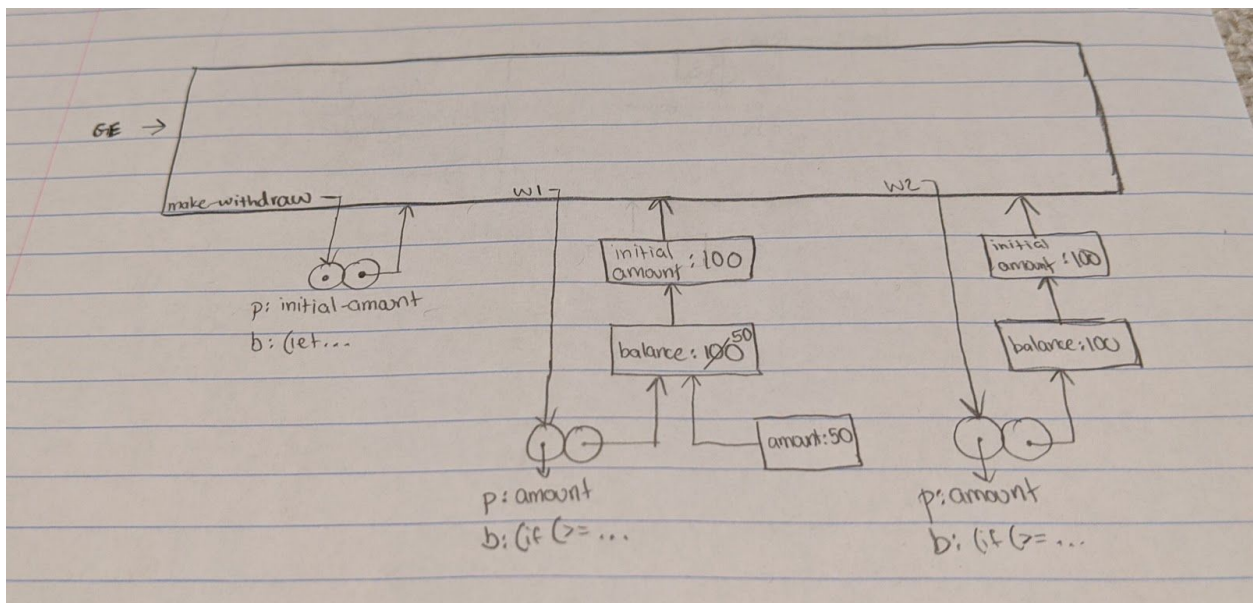 GE →
make-withdraw
W1
W2
p: initial-amount
b: (let...
initial
amount : 100
balance: 100 50
amount: 50
p: amount
b: (if (>= ...
initial
amount : 100
balance: 100
p: amount
b: (if (>= ...